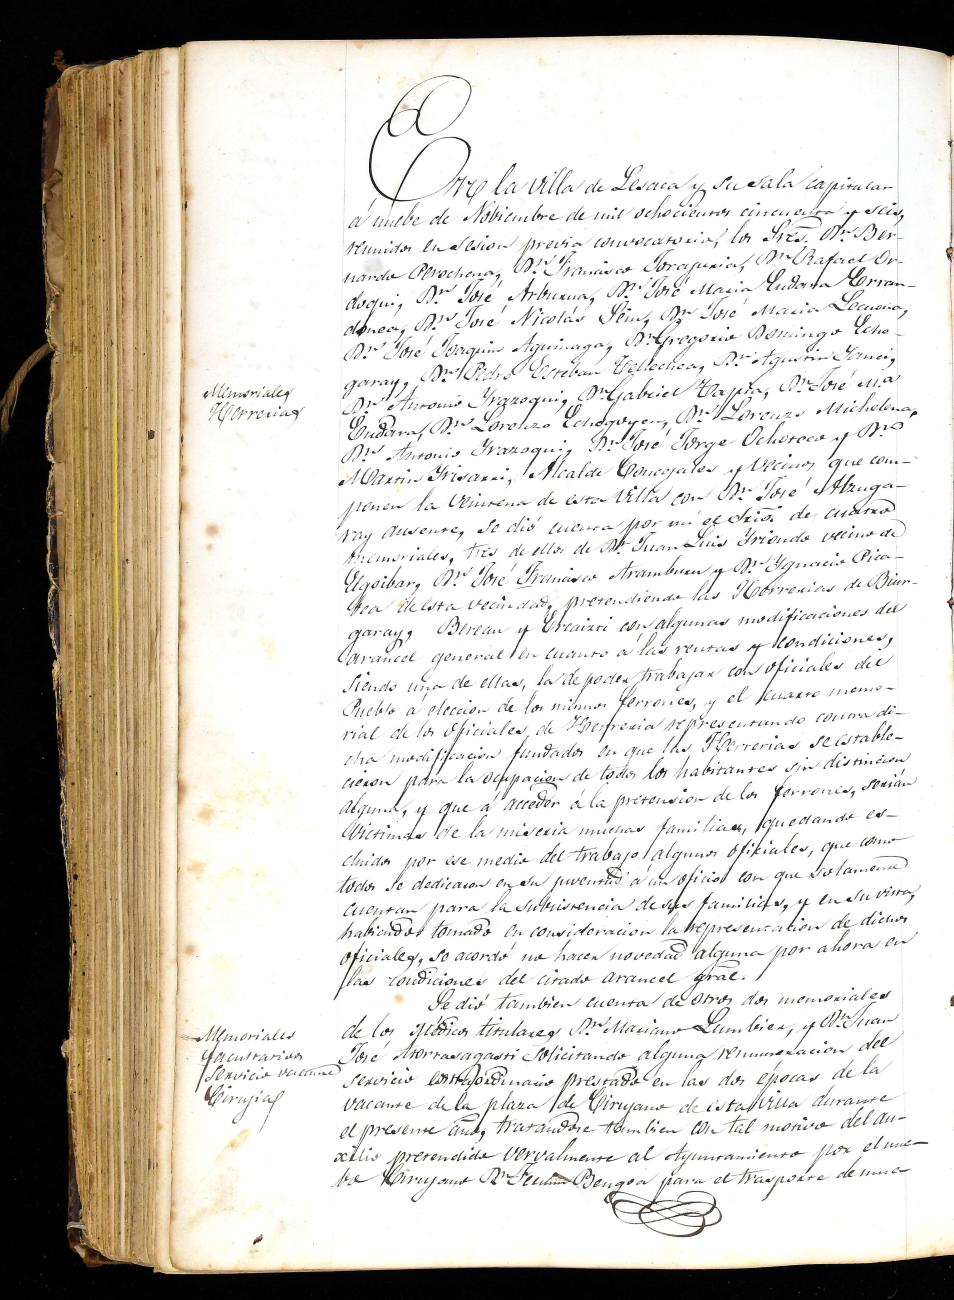 En la villa de Lesaca y su sala capitular
á nuebe de Nobiembre de mil ochocientos cincuenta y seis,
reunidos en sesion previa convocatoria, los Sres. Dn. Ber-
nardo Perochena, Dn. Francisco Torajuria, Dn. Rafael Or-
doqui, Dn. José Arburua, Dn. José Maria Endara Erran-
donea, Dn. José Nicolás Sein, Dn. José Maria Lecuona,
Dn. José Joaquin Aguinaga, Dn. Gregorio Domingo Echa-
garay, Dn. Pedro Esteban Tellechea, Dn. Agustin Yanci,
Memoriales
Herrerias
Dn. Antonio Yrazoqui, Dn. Gabriel Tapia, Dn. José M.a
Endara, Dn. Lorenzo Echegoyen, Dn. Lorenzo Michelena,
Dn. Antonio Yrazoqui, Dn. José Jorge Ochoteco y Dn.
Martin Yrisarri, Alcalde Concejales y Vecinos que com-
ponen la Veintena de esta Villa con Dn. José Alzuga-
ray ausente, se dió cuenta por mi el Srio. de cuatro
memoriales, tres de ellos de Dn. Juan Luis Yriondo vecino de
Elgoibar, Dn. José Francisco Aramburu y Dn. Ygnacio Pica-
bea de esta vecindad, pretendiendo las Herrerias de Biur-
garay, Berean y Ercaizti con algunas modificaciones del
arancel general en cuanto á las rentas y condiciones,
siendo una de ellas, la de poder trabajar con oficiales del
Pueblo a eleccion de los mismos ferrones, y el cuarto memo-
rial de los oficiales de Herreria representando contra di-
cha modificacion fundados en que las Herrerias se estable-
cieron para la ocupacion de todos los habitantes sin distincion
alguna, y que á acceder á la pretension de los ferrones, serián
victimas de la miseria muchas familias, quedando es-
cluidos por ese medio del trabajo algunos oficiales, que como
todos se dedicaron en su juventud á un oficio con que solamente
cuentan para la subsistencia de sus familias, y en su vista,
habiendo tomado en consideracion la representacion de dichos
oficiales, se acordó no hacer novedad alguna por ahora en
las condiciones del citado arancel gral.
Se dió tambien cuenta de otros dos memoriales
Memoriales
Facultativos
Servicio vacante
Cirujia
de los Médicos titulares Dn. Mariano Lumbier, y Dn. Juan
José Aforrasagasti solicitando alguna remuneracion del
servicio extraordinario prestado en las dos épocas de la
vacante de la plaza de Cirujano de esta Villa durante
el presente año, tratandose tambien con tal motivo del au-
xilio pretendido vervalmente al Ayuntamiento por el nue-
bo Cirujano Dn. Fermin Bengoa para el trasporte de mue-